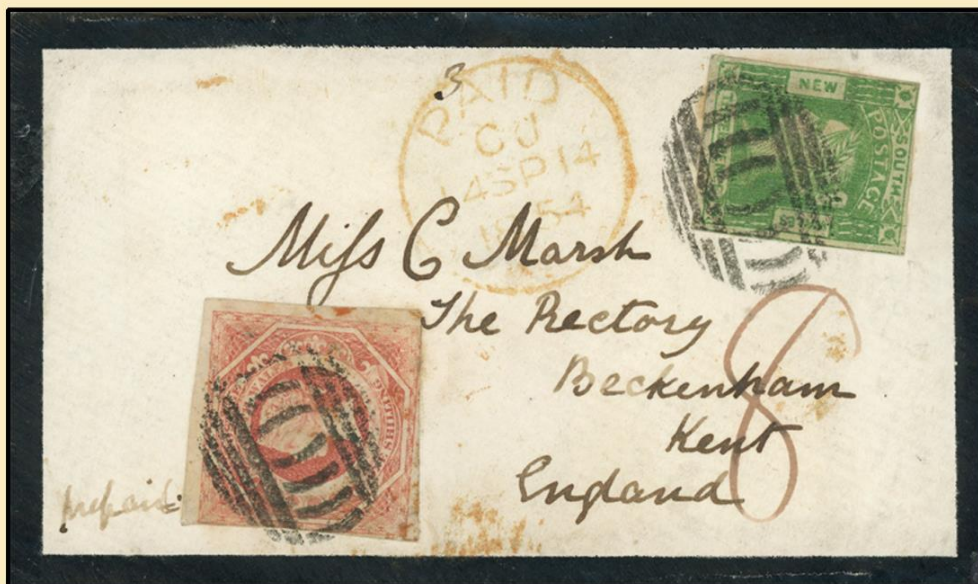 3
PAID
CU
14SP14
1854
NEW
SOUTH
POSTAGE
Miſs C Marsh
The Rectory
8
Beckenham
Kent
England
prepaid